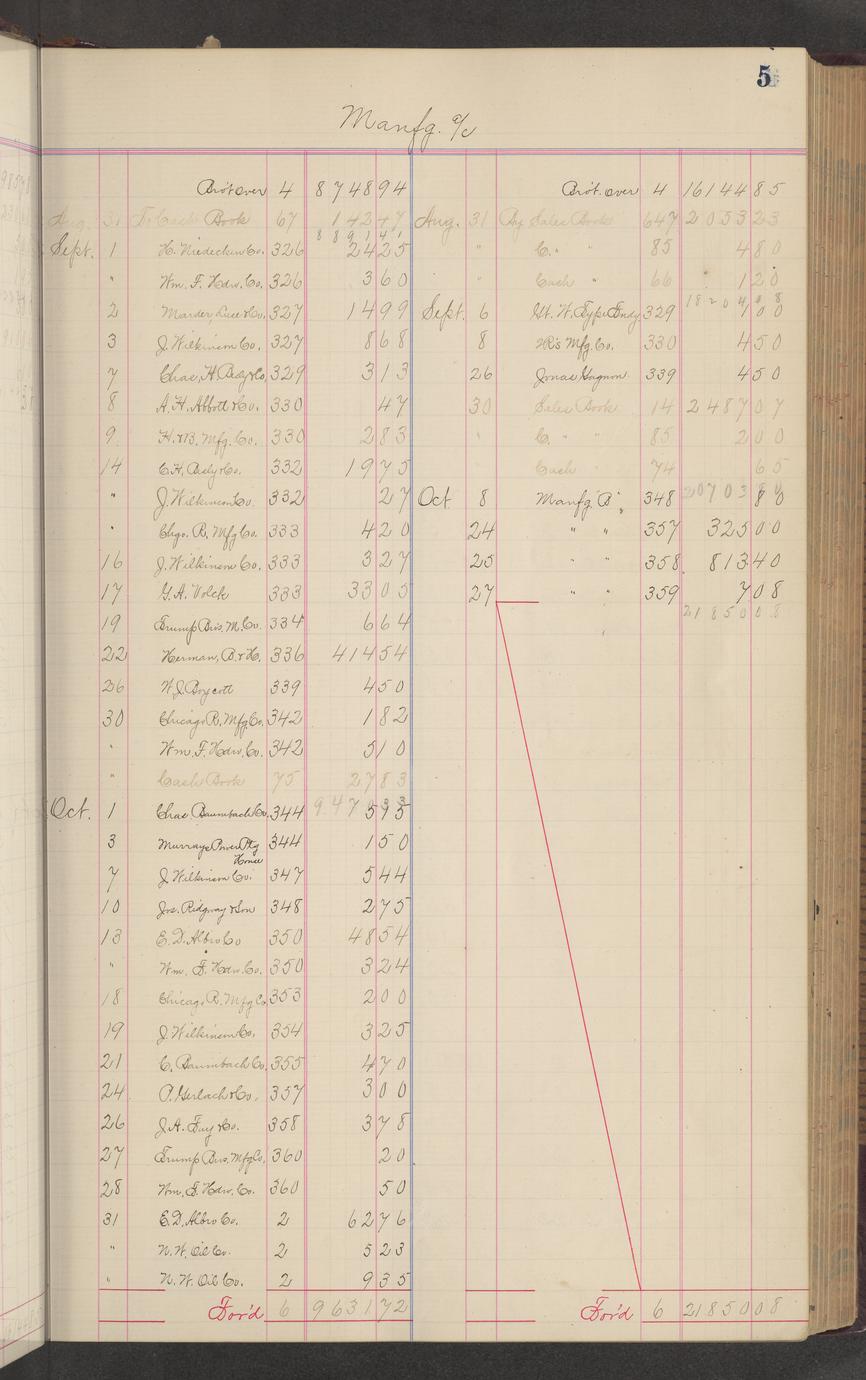 5
Manfg. a/c
Bro't over 4 8748 94
Aug. 31 To Cash Book 67 142 47
8891 41
Sept. 1 H. Niedecken Co. 326 24 25
" Wm. F. Hdw. Co. 326 3 60
2 Marder, Luce & Co. 327 14 99
3 J. Wilkinson Co. 327 8 68
7 Chas. H. Besly & Co. 329 3 13
8 A. H. Abbott & Co. 330 47
9 H. & B. Mfg. Co. 330 2 83
14 C. H. Besly & Co. 332 19 75
" J. Wilkinson Co. 332 27
" Chgo. R. Mfg Co. 333 4 20
16 J. Wilkinson Co. 333 3 27
17 G. A. Volck 333 33 05
19 Trump Bros. M. Co. 334 6 64
22 Herman, B. & H. 336 414 54
26 W. J. Boycott 339 4 50
30 Chicago R. Mfg Co. 342 1 82
" Wm. F. Hdw. Co. 342 5 10
" Cash Book 75 27 83
9470 33
Oct. 1 Chas Baumbach Co. 344 5 95
3 Murrays Power Ptg House 344 1 50
7 J. Wilkinson Co. 347 5 44
10 Jos. Ridgway & Son 348 2 75
13 E. D. Albro Co 350 48 54
" Wm. F. Hdw. Co. 350 3 24
18 Chicago R. Mfg Co. 353 2 00
19 J. Wilkinson Co. 354 3 25
21 C. Baumbach Co. 355 4 70
24 P. Gerlach & Co. 357 3 00
26 J. A. Fay & Co. 358 3 78
27 Trump Bros. Mfg Co. 360 20
28 Wm. F. Hdw. Co. 360 50
31 E. D. Albro Co. 2 62 76
" N. W. Oil Co. 2 5 23
" N. W. Oil Co. 2 9 35
For'd 6 9631 72
Bro't over 4 16144 85
Aug. 31 By Sales Book 647 2053 23
" C. " " 85 4 80
" Cash " 66 1 20
18204 08
Sept. 6 Gt. W. Type Fndy 329 1 00
8 Mfg. Co. 330 4 50
26 Jonas Gagnon 339 4 50
30 Sales Book 14 2487 07
" C. " " 85 2 00
" Cash " 74 65
20703 80
Oct 8 Manfg "B" 348 80
24 " " 357 325 00
25 " " 358 813 40
27 " " 359 7 08
21850 08
For'd 6 21850 08